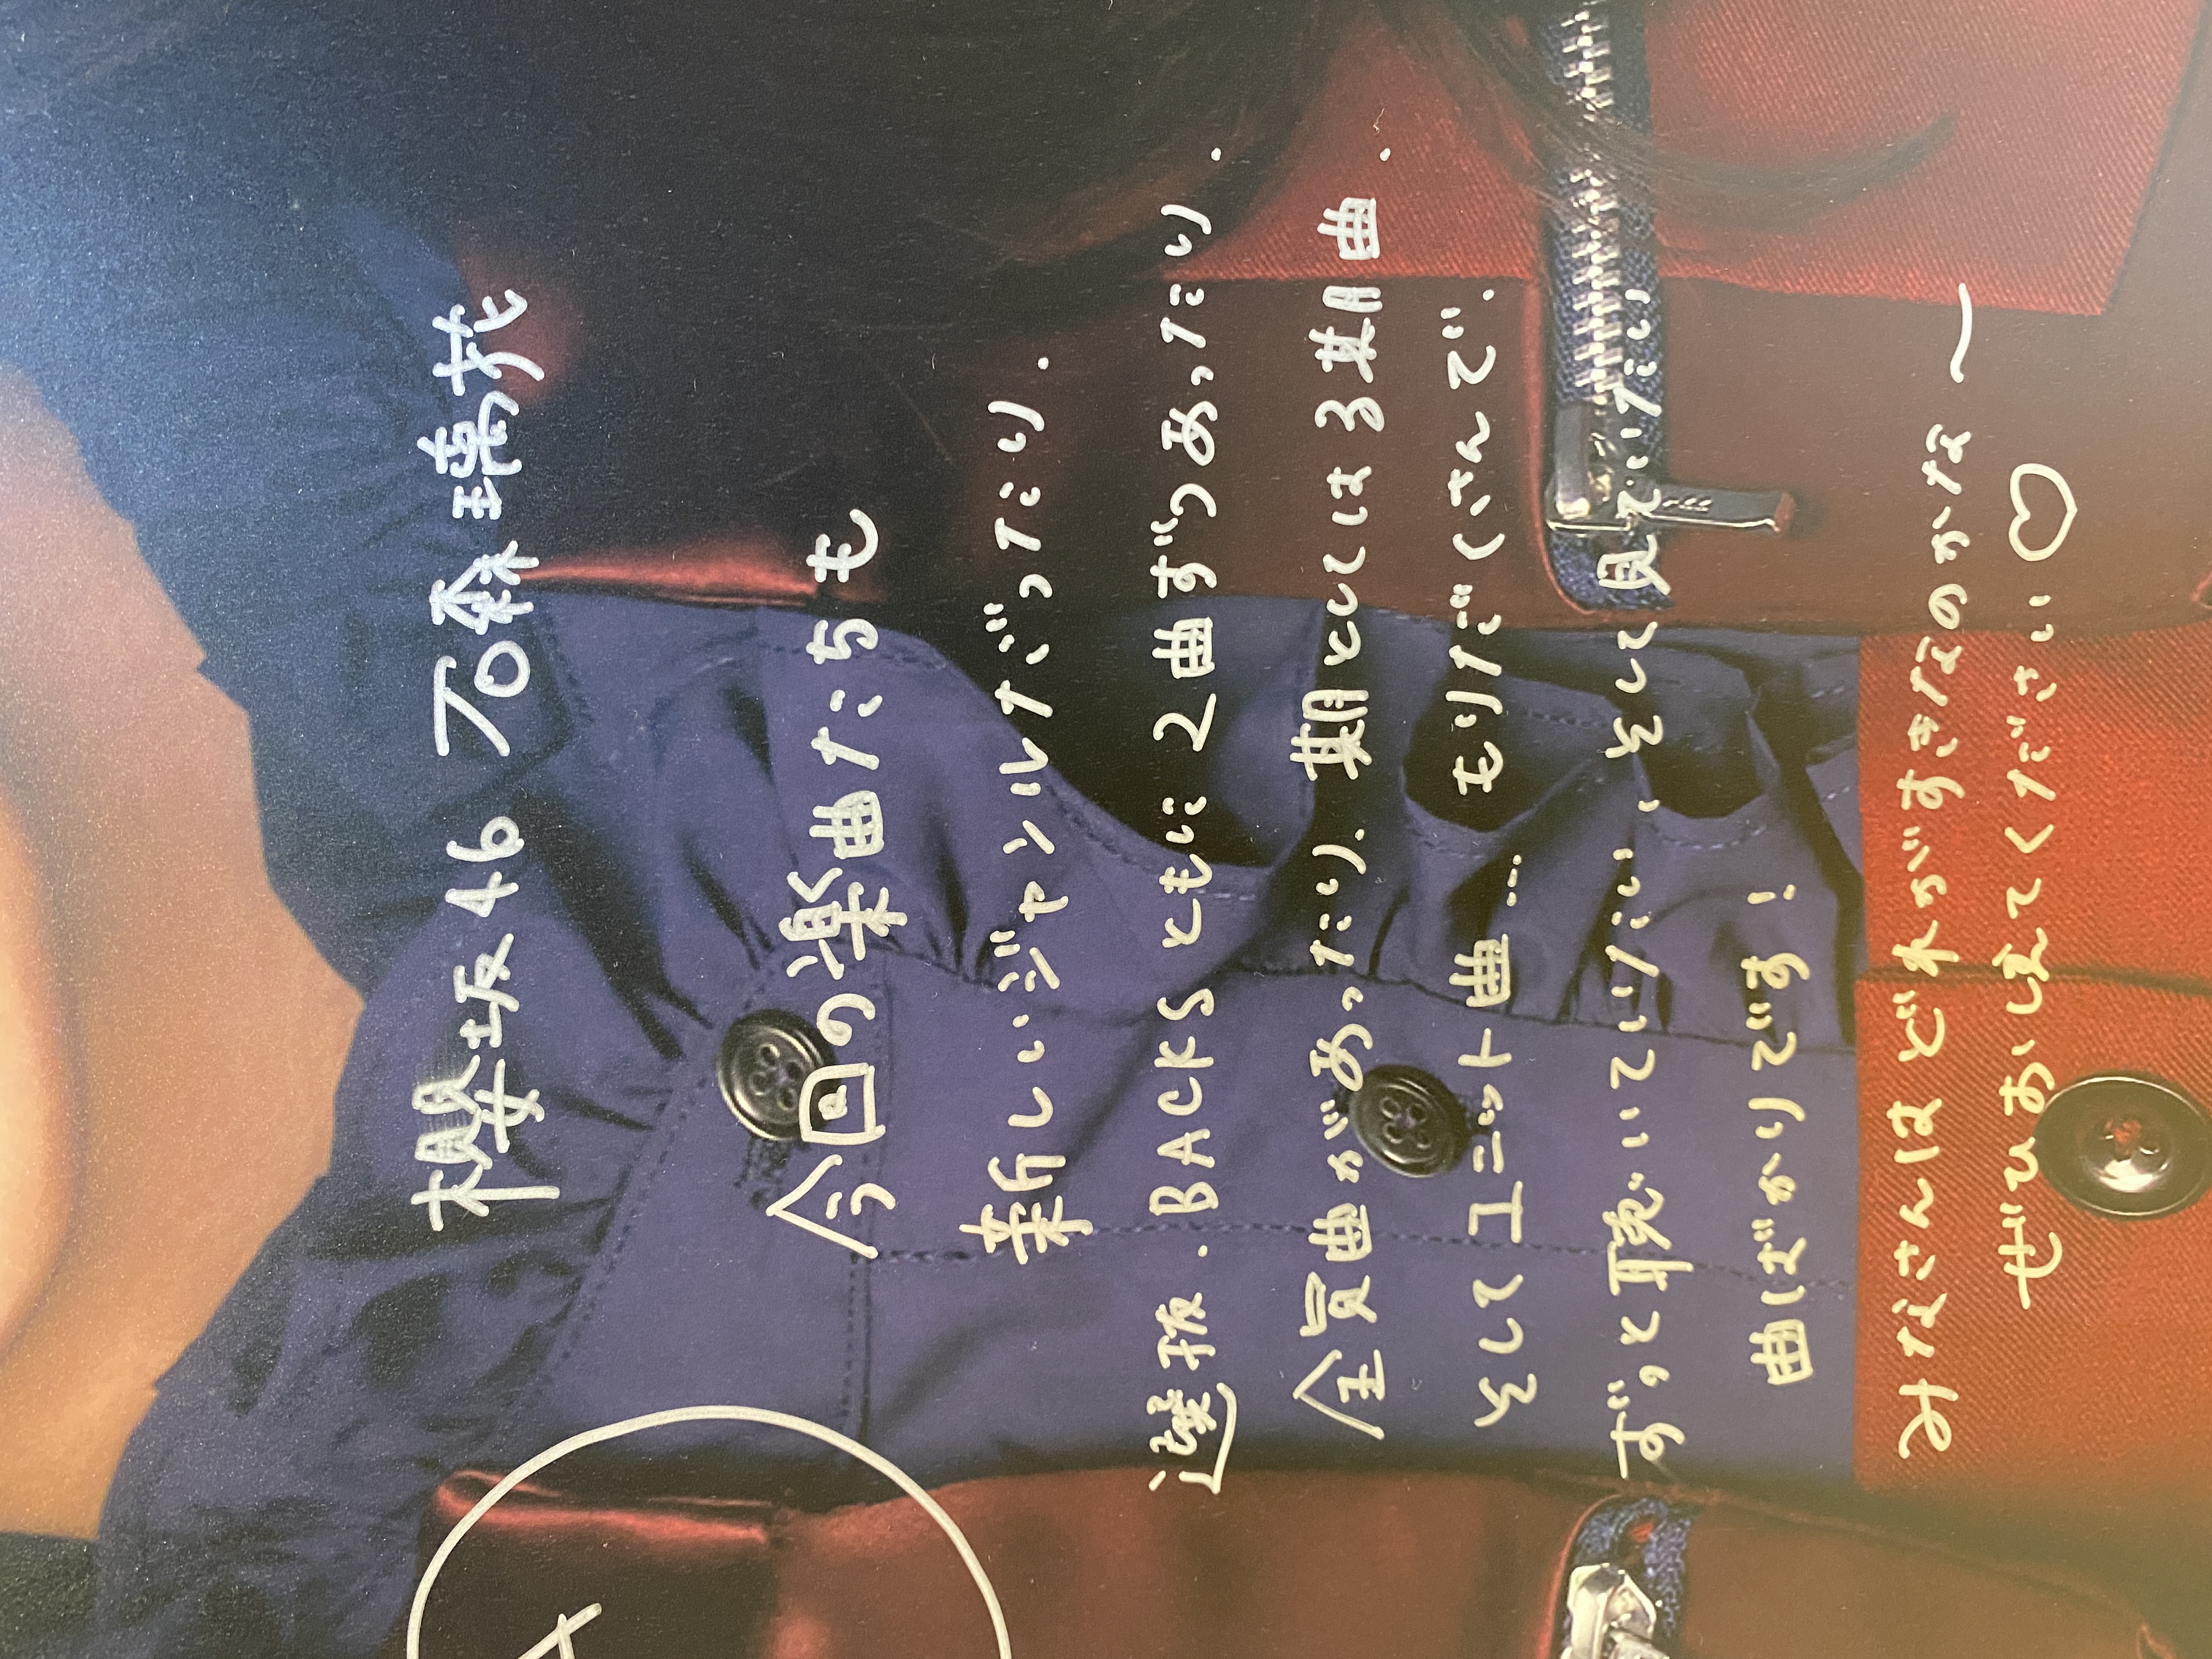 櫻坂46 石森璃花
A
今回の楽曲たちも
新しいジャンルだったり、
選抜、BACKSともに2曲ずつあったり、
全員曲があったり、期としては3期曲、
そしてユニット曲… もりだくさんで、
ずっと聴いていたい、そして見ていたい
曲ばかりです!
みなさんはどれがすきなのかな〜
ぜひおしえてください♡